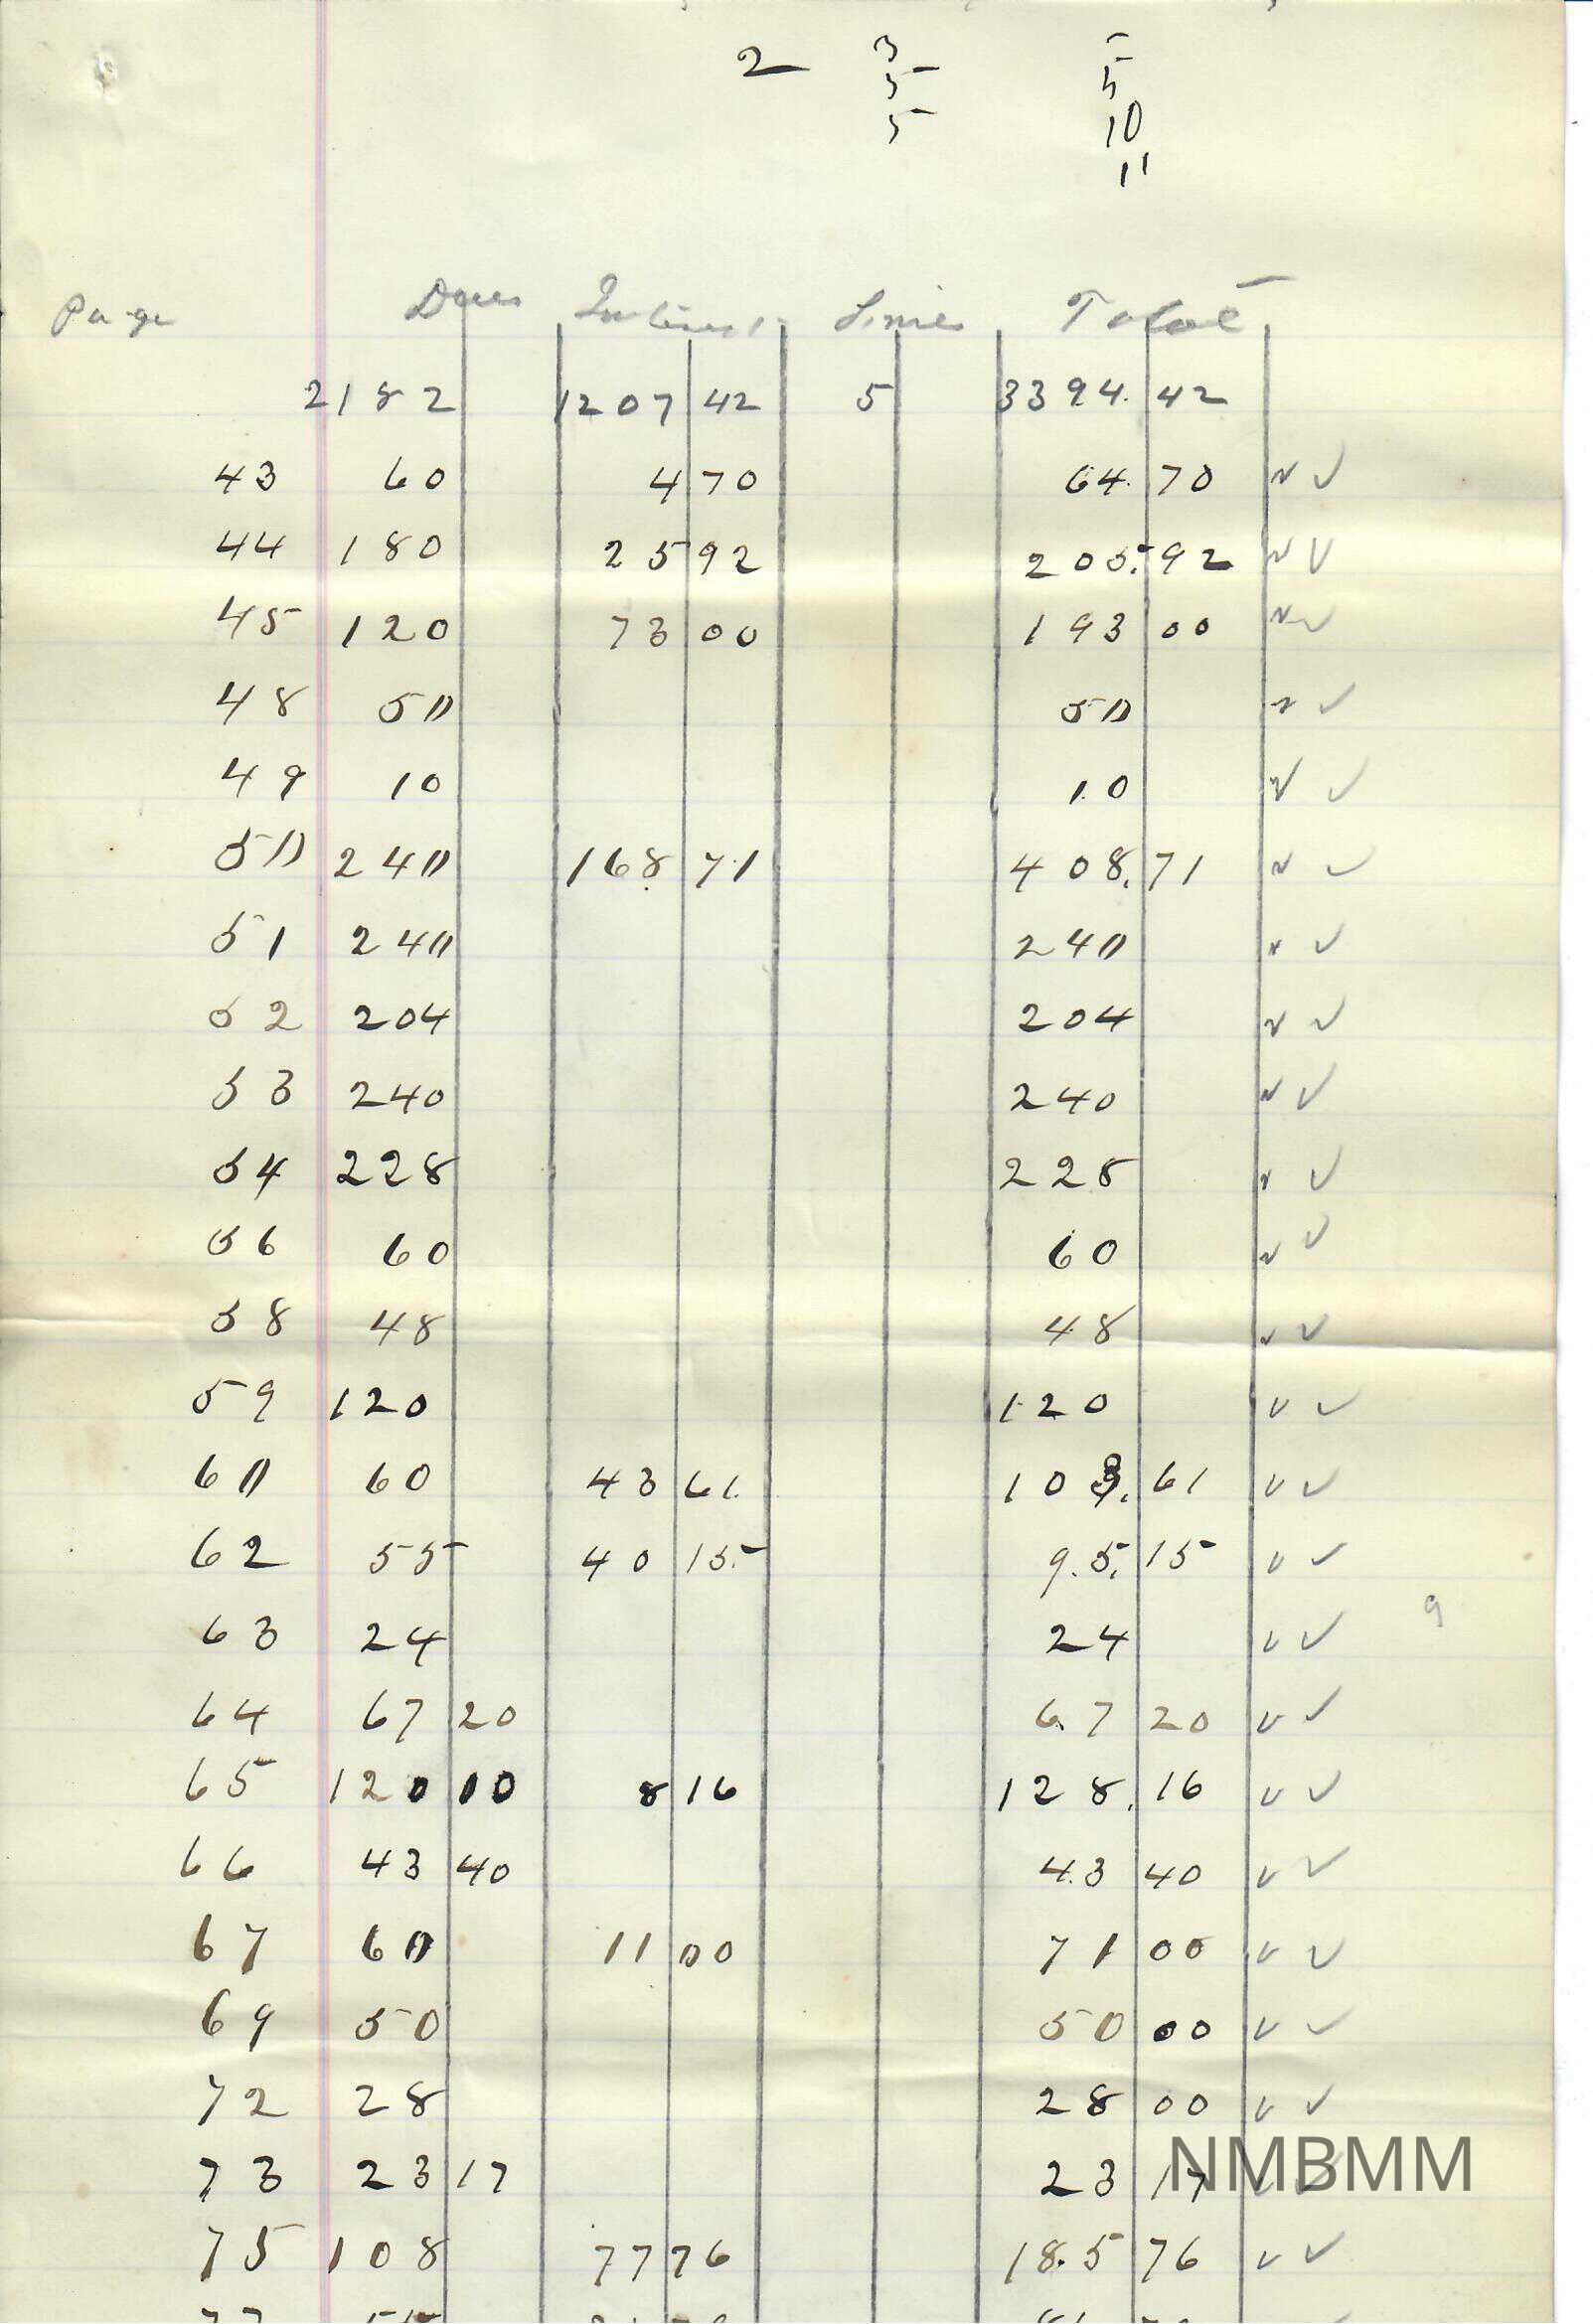 2 3 5
5 10
5 11
Page Dues Interest Fines Total
2182 1207 42 5 3394. 42
43 60 4 70 64. 70
44 180 25 92 205. 92
45 120 73 00 193 00
48 50 50
49 10 10
50 240 168. 71 408. 71
51 240 240
52 204 204
53 240 240
54 228 228
56 60 60
58 48 48
59 120 120
60 60 43 61. 103. 61
62 55 40 15 95. 15
63 24 24
9
64 67 20 67 20
65 120 00 8 16 128. 16
66 43 40 43 40
67 60 11 00 71 00
69 50 50 00
72 28 28 00
73 23 17 23 17
75 108 77 76 185 76
NMBMM